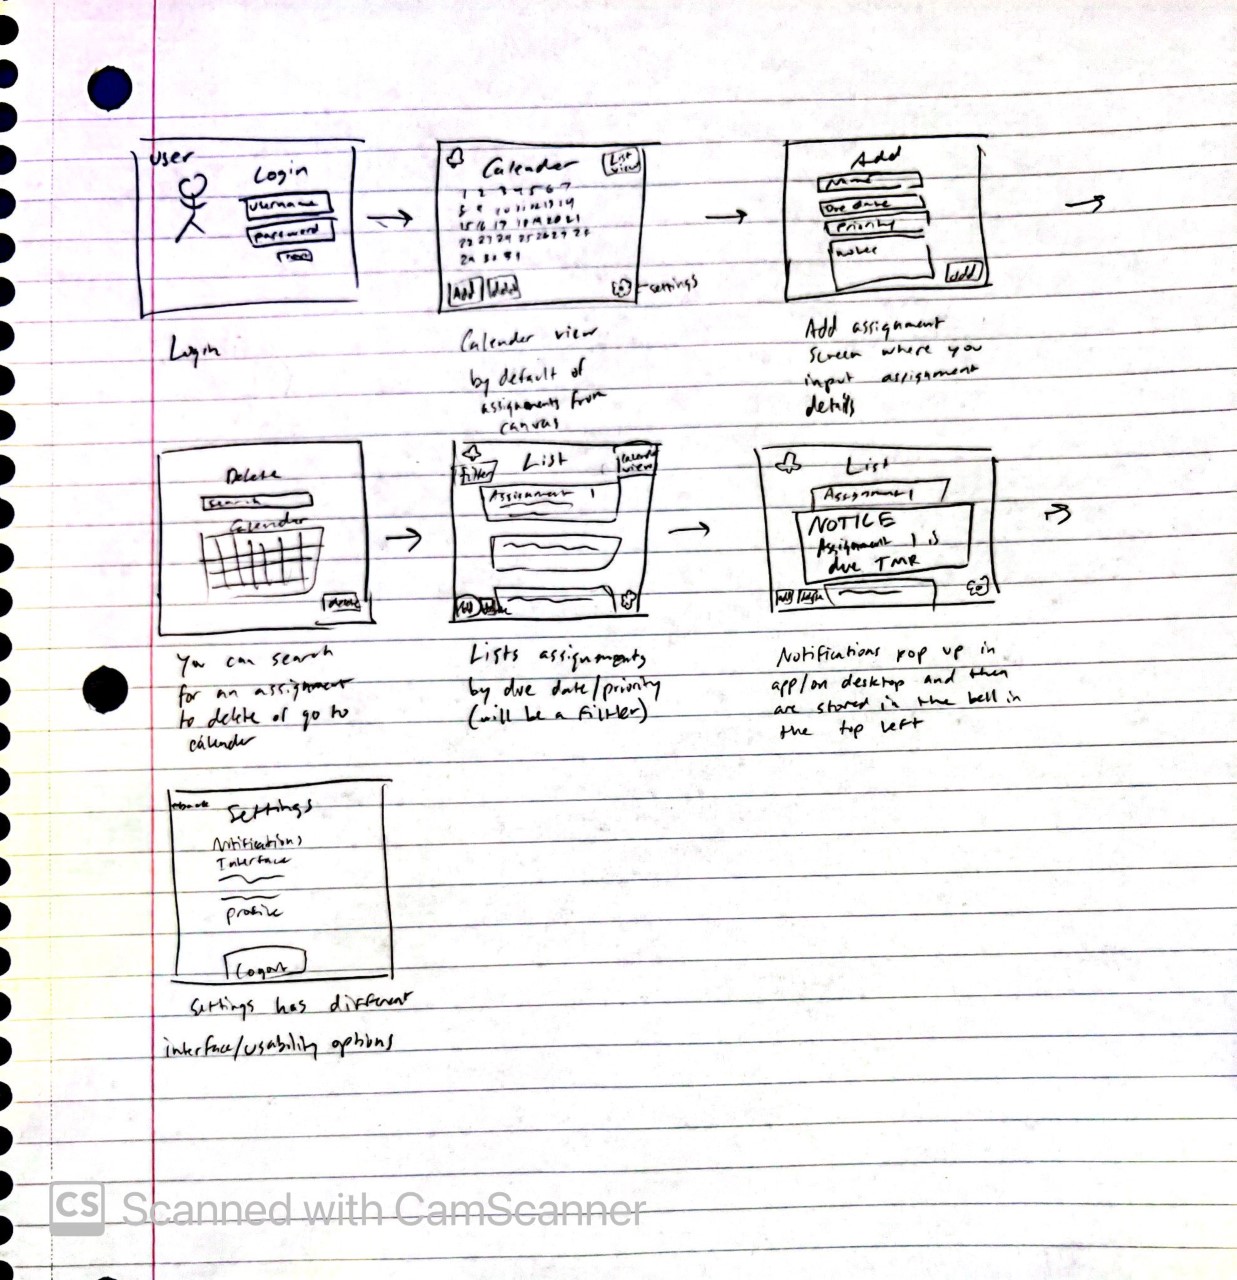 user
Login
username
password
Login
Calender
List
view
1 2 3 4 5 6 7
8 9 10 11 12 13 14
15 16 17 18 19 20 21
22 23 24 25 26 27 28
29 30 31
Add
settings
Calender view
by default of
assignments from
canvas
Add
Name
Due date
Priority
notes
Add
Add assignment
screen where you
input assignment
details
Delete
search
Calendar
delete
You can search
for an assignment
to delete or go to
calender
List
Filter
Calendar
view
Assignment 1
Add
Lists assignments
by due date/priority
(will be a filter)
List
Assignment 1
NOTICE
Assignment 1 is
due TMR
Add
Notifications pop up in
app/on desktop and then
are stored in the bell in
the top left
Settings
Notifications
Interface
profile
Logout
Settings has different
interface/usability options
CS Scanned with CamScanner